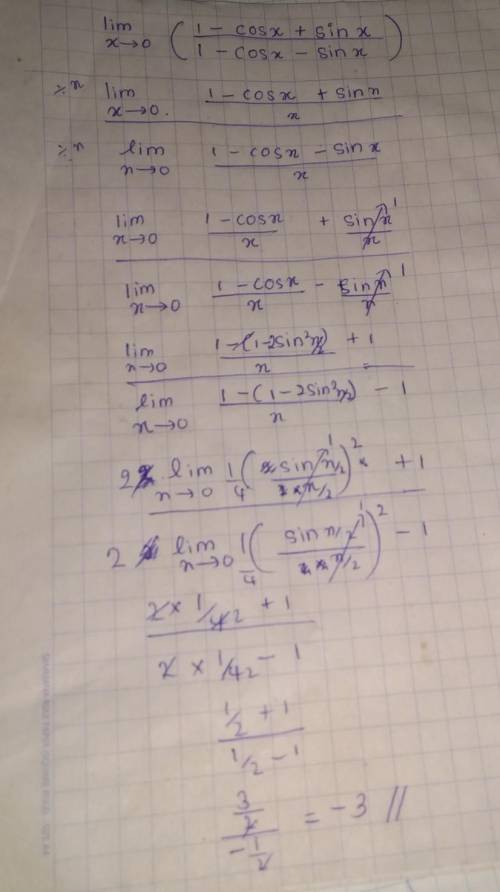 lim x→0 ( (1 - cosx + sin x) / (1 - cosx - sin x) )
÷x lim x→0. (1 - cosx + sinx) / x
÷x lim x→0 (1 - cosx - sin x) / x
lim x→0 (1 - cosx) / x + (sin x / x) 1
lim x→0 (1 - cosx) / x - (sin x / x) 1
lim x→0 (1 - (1 - 2sin²x/2)) / x + 1
lim x→0 (1 - (1 - 2sin²x/2)) / x - 1
2 lim x→0 1/4 ( sin x/2 / x/2 )² + 1
2 lim x→0 1/4 ( sin x/2 / x/2 )² - 1
2 × 1/42 + 1
2 × 1/42 - 1
1/2 + 1
1/2 - 1
3/2 / -1/2 = -3 //